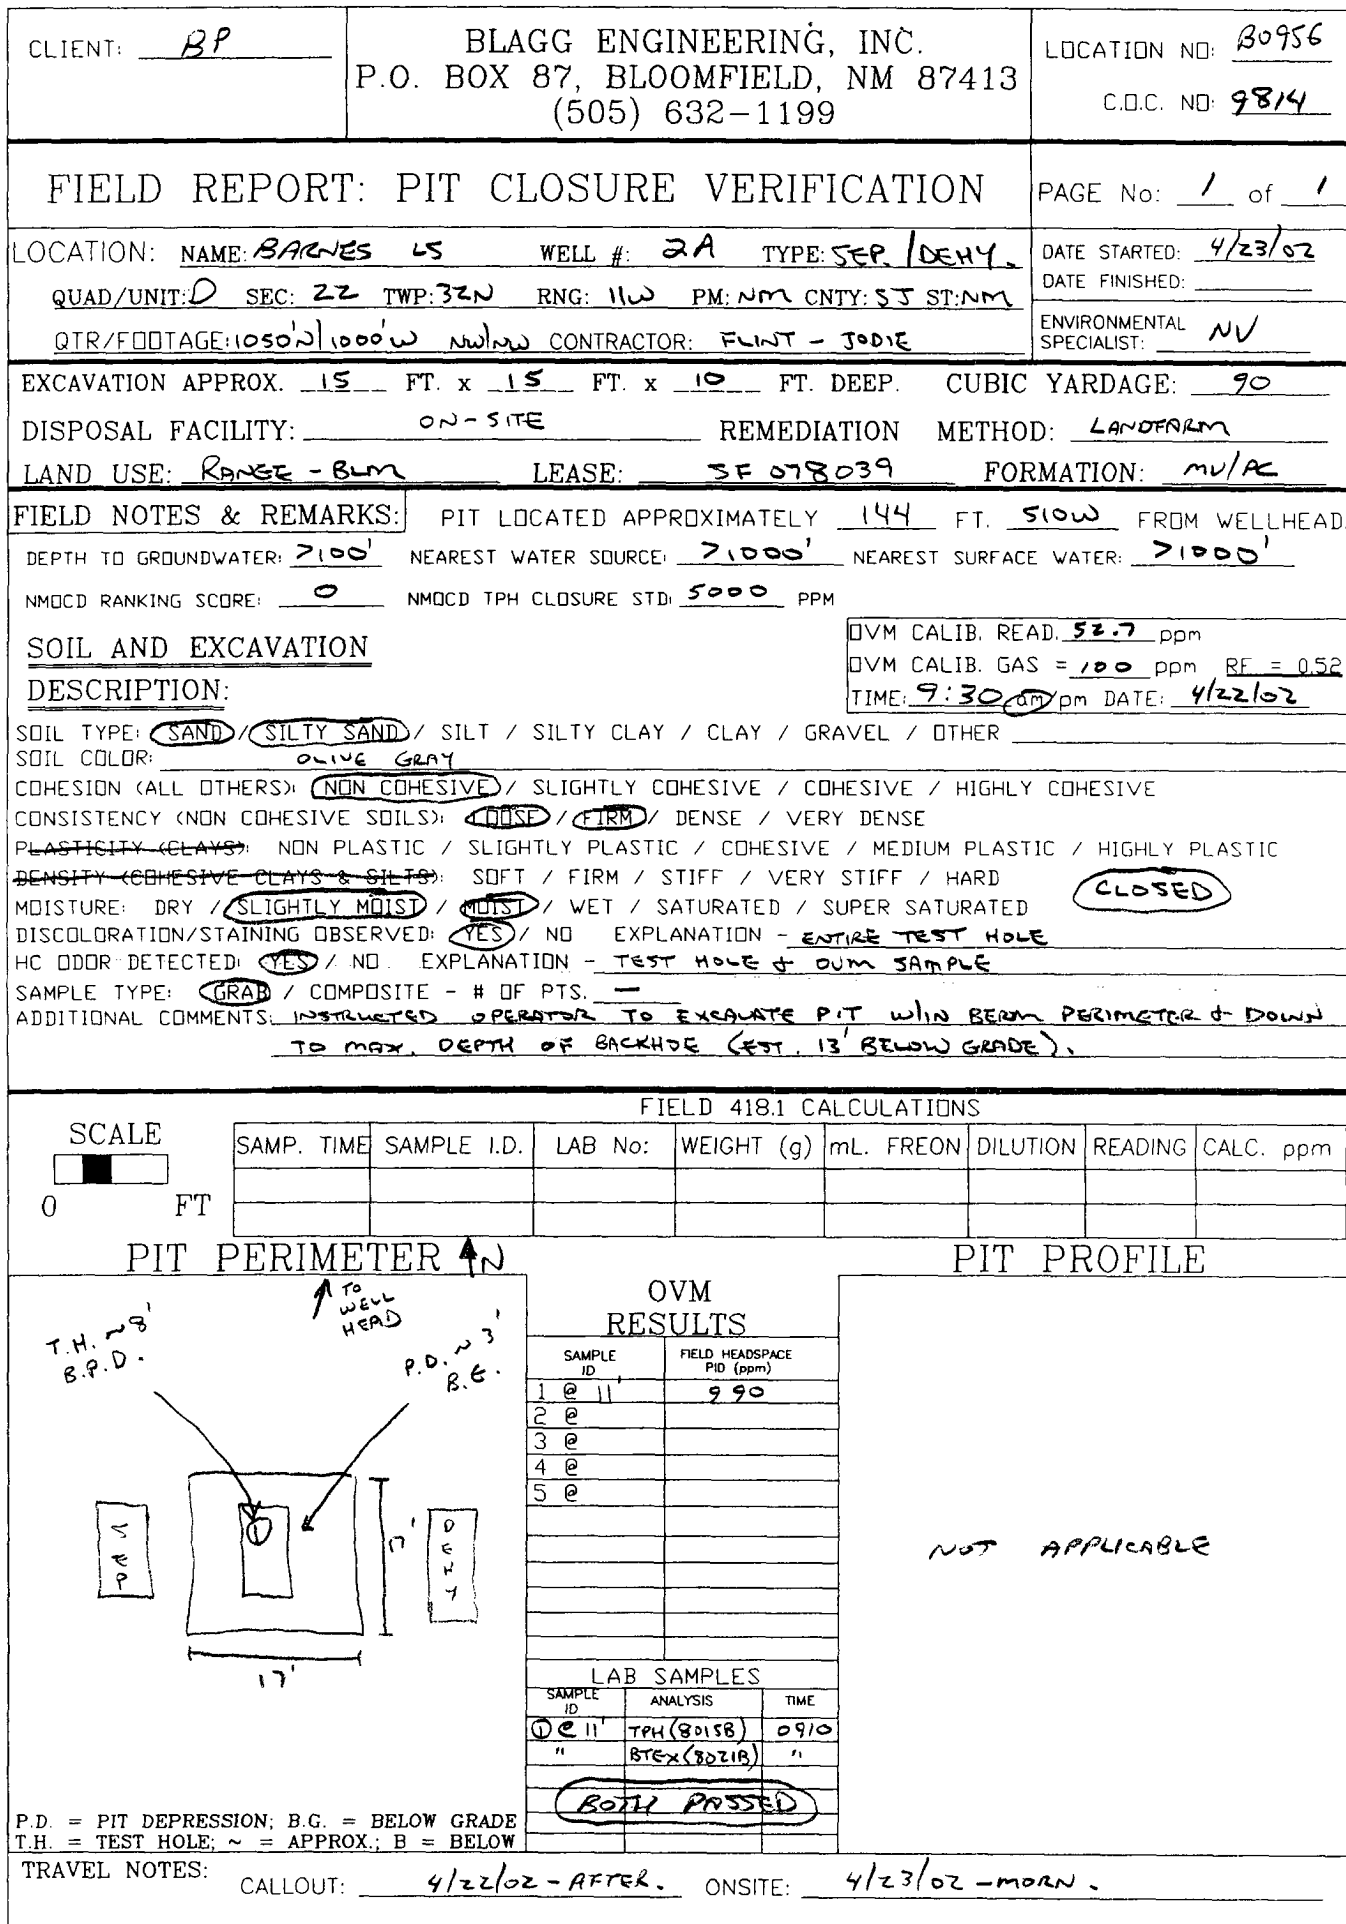 CLIENT: BP
BLAGG ENGINEERING, INC.
P.O. BOX 87, BLOOMFIELD, NM 87413
(505) 632-1199
LOCATION NO: B0956
C.O.C. NO: 9814
FIELD REPORT: PIT CLOSURE VERIFICATION
PAGE No: 1 of 1
LOCATION: NAME: BARNES LS WELL #: 2A TYPE: SEP. / DEHY.
QUAD/UNIT: D SEC: 22 TWP: 32N RNG: 11W PM: NM CNTY: SJ ST: NM
QTR/FOOTAGE: 1050'N/1000'W NW/NW CONTRACTOR: FLINT - JODIE
DATE STARTED: 4/23/02
DATE FINISHED:
ENVIRONMENTAL SPECIALIST: NV
EXCAVATION APPROX. 15 FT. x 15 FT. x 10 FT. DEEP. CUBIC YARDAGE: 90
DISPOSAL FACILITY: ON-SITE REMEDIATION METHOD: LANDFARM
LAND USE: RANGE - BLM LEASE: SF 078039 FORMATION: MV/PC
FIELD NOTES & REMARKS: PIT LOCATED APPROXIMATELY 144 FT. S10W FROM WELLHEAD.
DEPTH TO GROUNDWATER: >100' NEAREST WATER SOURCE: >1000' NEAREST SURFACE WATER: >1000'
NMOCD RANKING SCORE: 0 NMOCD TPH CLOSURE STD: 5000 PPM
SOIL AND EXCAVATION
DESCRIPTION:
OVM CALIB. READ. 52.7 ppm
OVM CALIB. GAS = 100 ppm RF = 0.52
TIME: 9:30 am/pm DATE: 4/22/02
SOIL TYPE: SAND / SILTY SAND / SILT / SILTY CLAY / CLAY / GRAVEL / OTHER
SOIL COLOR: OLIVE GRAY
COHESION (ALL OTHERS): NON COHESIVE / SLIGHTLY COHESIVE / COHESIVE / HIGHLY COHESIVE
CONSISTENCY (NON COHESIVE SOILS): LOOSE / FIRM / DENSE / VERY DENSE
PLASTICITY (CLAYS): NON PLASTIC / SLIGHTLY PLASTIC / COHESIVE / MEDIUM PLASTIC / HIGHLY PLASTIC
DENSITY (COHESIVE CLAYS & SILTS): SOFT / FIRM / STIFF / VERY STIFF / HARD
CLOSED
MOISTURE: DRY / SLIGHTLY MOIST / MOIST / WET / SATURATED / SUPER SATURATED
DISCOLORATION/STAINING OBSERVED: YES / NO EXPLANATION - ENTIRE TEST HOLE
HC ODOR DETECTED: YES / NO EXPLANATION - TEST HOLE & OVM SAMPLE
SAMPLE TYPE: GRAB / COMPOSITE - # OF PTS. —
ADDITIONAL COMMENTS: INSTRUCTED OPERATOR TO EXCAVATE PIT W/IN BERM PERIMETER & DOWN
TO MAX. DEPTH OF BACKHOE (EST. 13' BELOW GRADE).
FIELD 418.1 CALCULATIONS
SCALE
0 FT
SAMP. TIME SAMPLE I.D. LAB No: WEIGHT (g) mL. FREON DILUTION READING CALC. ppm
PIT PERIMETER N
PIT PROFILE
TO
WELL
HEAD
T.H. ~8'
B.P.D.
P.D. ~3'
B.G.
1
SEP
DEHY
17'
17'
OVM
RESULTS
SAMPLE ID FIELD HEADSPACE PID (ppm)
1 @ 11' 990
2 @
3 @
4 @
5 @
NOT APPLICABLE
LAB SAMPLES
SAMPLE ID ANALYSIS TIME
① @ 11' TPH (8015B) 0910
" BTEX (8021B) "
BOTH PASSED
P.D. = PIT DEPRESSION; B.G. = BELOW GRADE
T.H. = TEST HOLE; ~ = APPROX.; B = BELOW
TRAVEL NOTES: CALLOUT: 4/22/02 - AFTER. ONSITE: 4/23/02 - MORN.